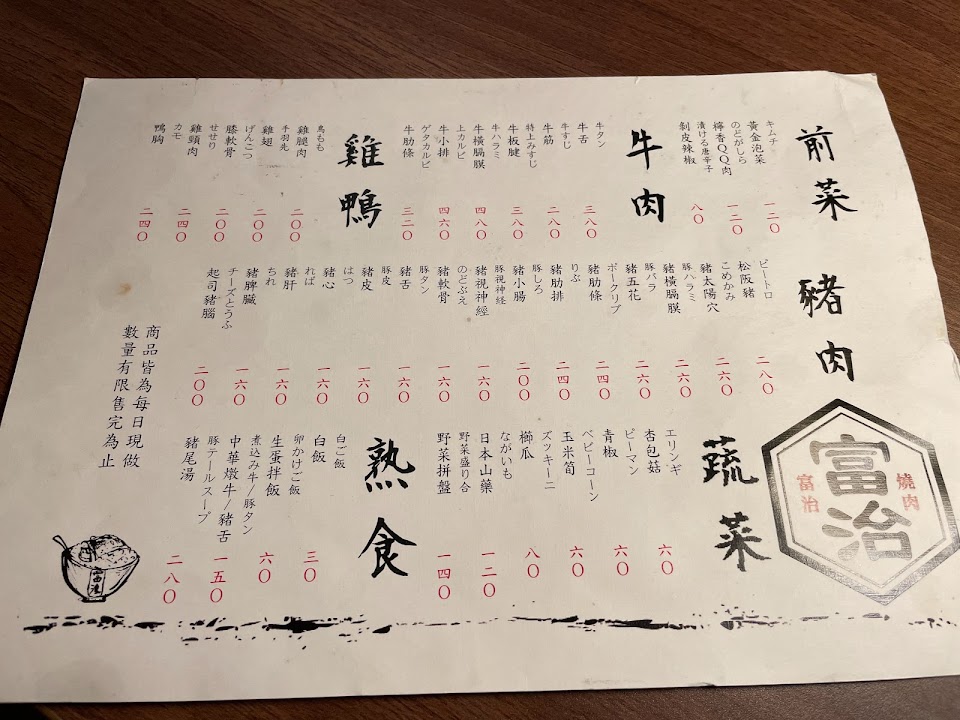 前菜
キムチ
黃金泡菜
一二〇
のどがしら
檸香QQ肉
一二〇
漬ける唐辛子
剝皮辣椒
八〇
牛肉
牛タン
牛舌
三八〇
牛すじ
牛筋
二八〇
特上みすじ
牛板腱
三八〇
牛ハラミ
牛橫膈膜
四八〇
上カルビ
牛小排
四六〇
ゲタカルビ
牛肋條
三二〇
雞鴨
鳥もも
雞腿肉
二〇〇
手羽先
雞翅
二〇〇
げんこつ
膝軟骨
二〇〇
せせり
雞頸肉
二四〇
カモ
鴨胸
二四〇
豬肉
ピートロ
松阪豬
二八〇
こめかみ
豬太陽穴
二六〇
豚ハラミ
豬橫膈膜
二六〇
豚バラ
豬五花
二六〇
ポークリブ
豬肋條
二四〇
りぶ
豬肋排
二四〇
豚しろ
豬小腸
二〇〇
豚視神経
豬視神經
一六〇
のどぶえ
豬軟骨
一六〇
豚タン
豬舌
一六〇
豚皮
豬皮
一六〇
はつ
豬心
一六〇
ればー
豬肝
一六〇
ちれ
豬脾臟
一六〇
チーズとうふ
起司豬腦
二〇〇
商品皆為每日現做
數量有限售完為止
蔬菜
エリンギ
杏包菇
六〇
ピーマン
青椒
六〇
ベビーコーン
玉米筍
六〇
ズッキーニ
櫛瓜
八〇
ながいも
日本山藥
一二〇
野菜盛り合
野菜拼盤
一四〇
熟食
白ご飯
白飯
三〇
卵かけご飯
生蛋拌飯
六〇
煮込み牛/豚タン
中華燉牛/豬舌
一五〇
豚テールスープ
豬尾湯
二八〇
燒肉
富治
富治
富治